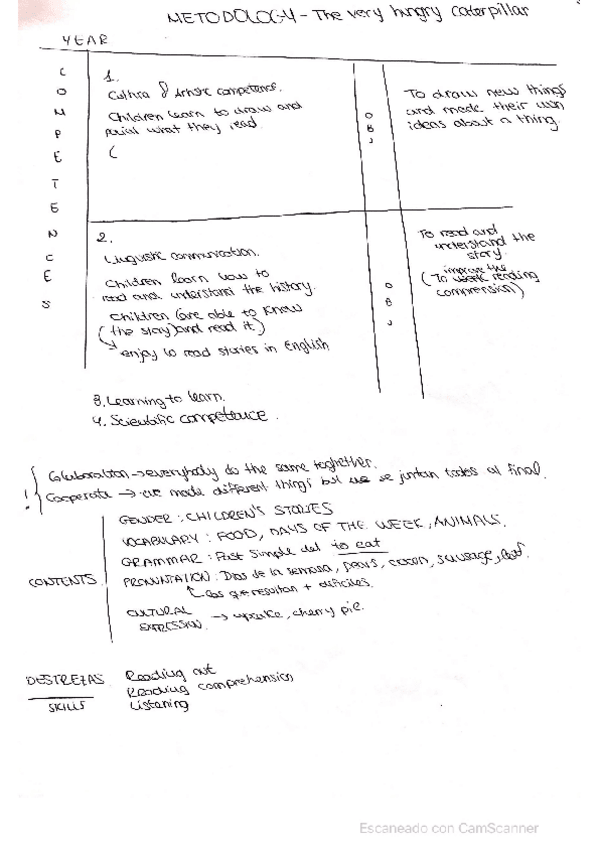 METODOLOGY - The very hungry caterpillar
YEAR
COMPETENCES
1.
Cultural & Artistic competence.
Children learn to draw and
paint what they read.
(
OBJ
To draw new things
and made their own
ideas about a thing.
2.
Linguistic communication.
Children learn how to
read and understand the history.
Children (are able to know
(the story) and read it)
enjoy to read stories in English
OBJ
To read and
understand the
story.
improve the
(To reading
comprension)
3. Learning to learn.
4. Scientific competence.
Colaboration → everybody do the same toghether.
! Cooperate → we made different things but se juntan todas al final.
CONTENTS
GENDER: CHILDREN'S STORIES
VOCABULARY: FOOD, DAYS OF THE WEEK, ANIMALS.
GRAMMAR: Past Simple del to eat
PRONUNTATION: Dias de la semana, pears, cocon, sausage, leaf.
las que resultan + dificiles.
CULTURAL
EXPRESSION. → cupcake, cherry pie.
DESTREZAS
SKILLS
Reading out
Reading comprehension
Listening
Escaneado con CamScanner